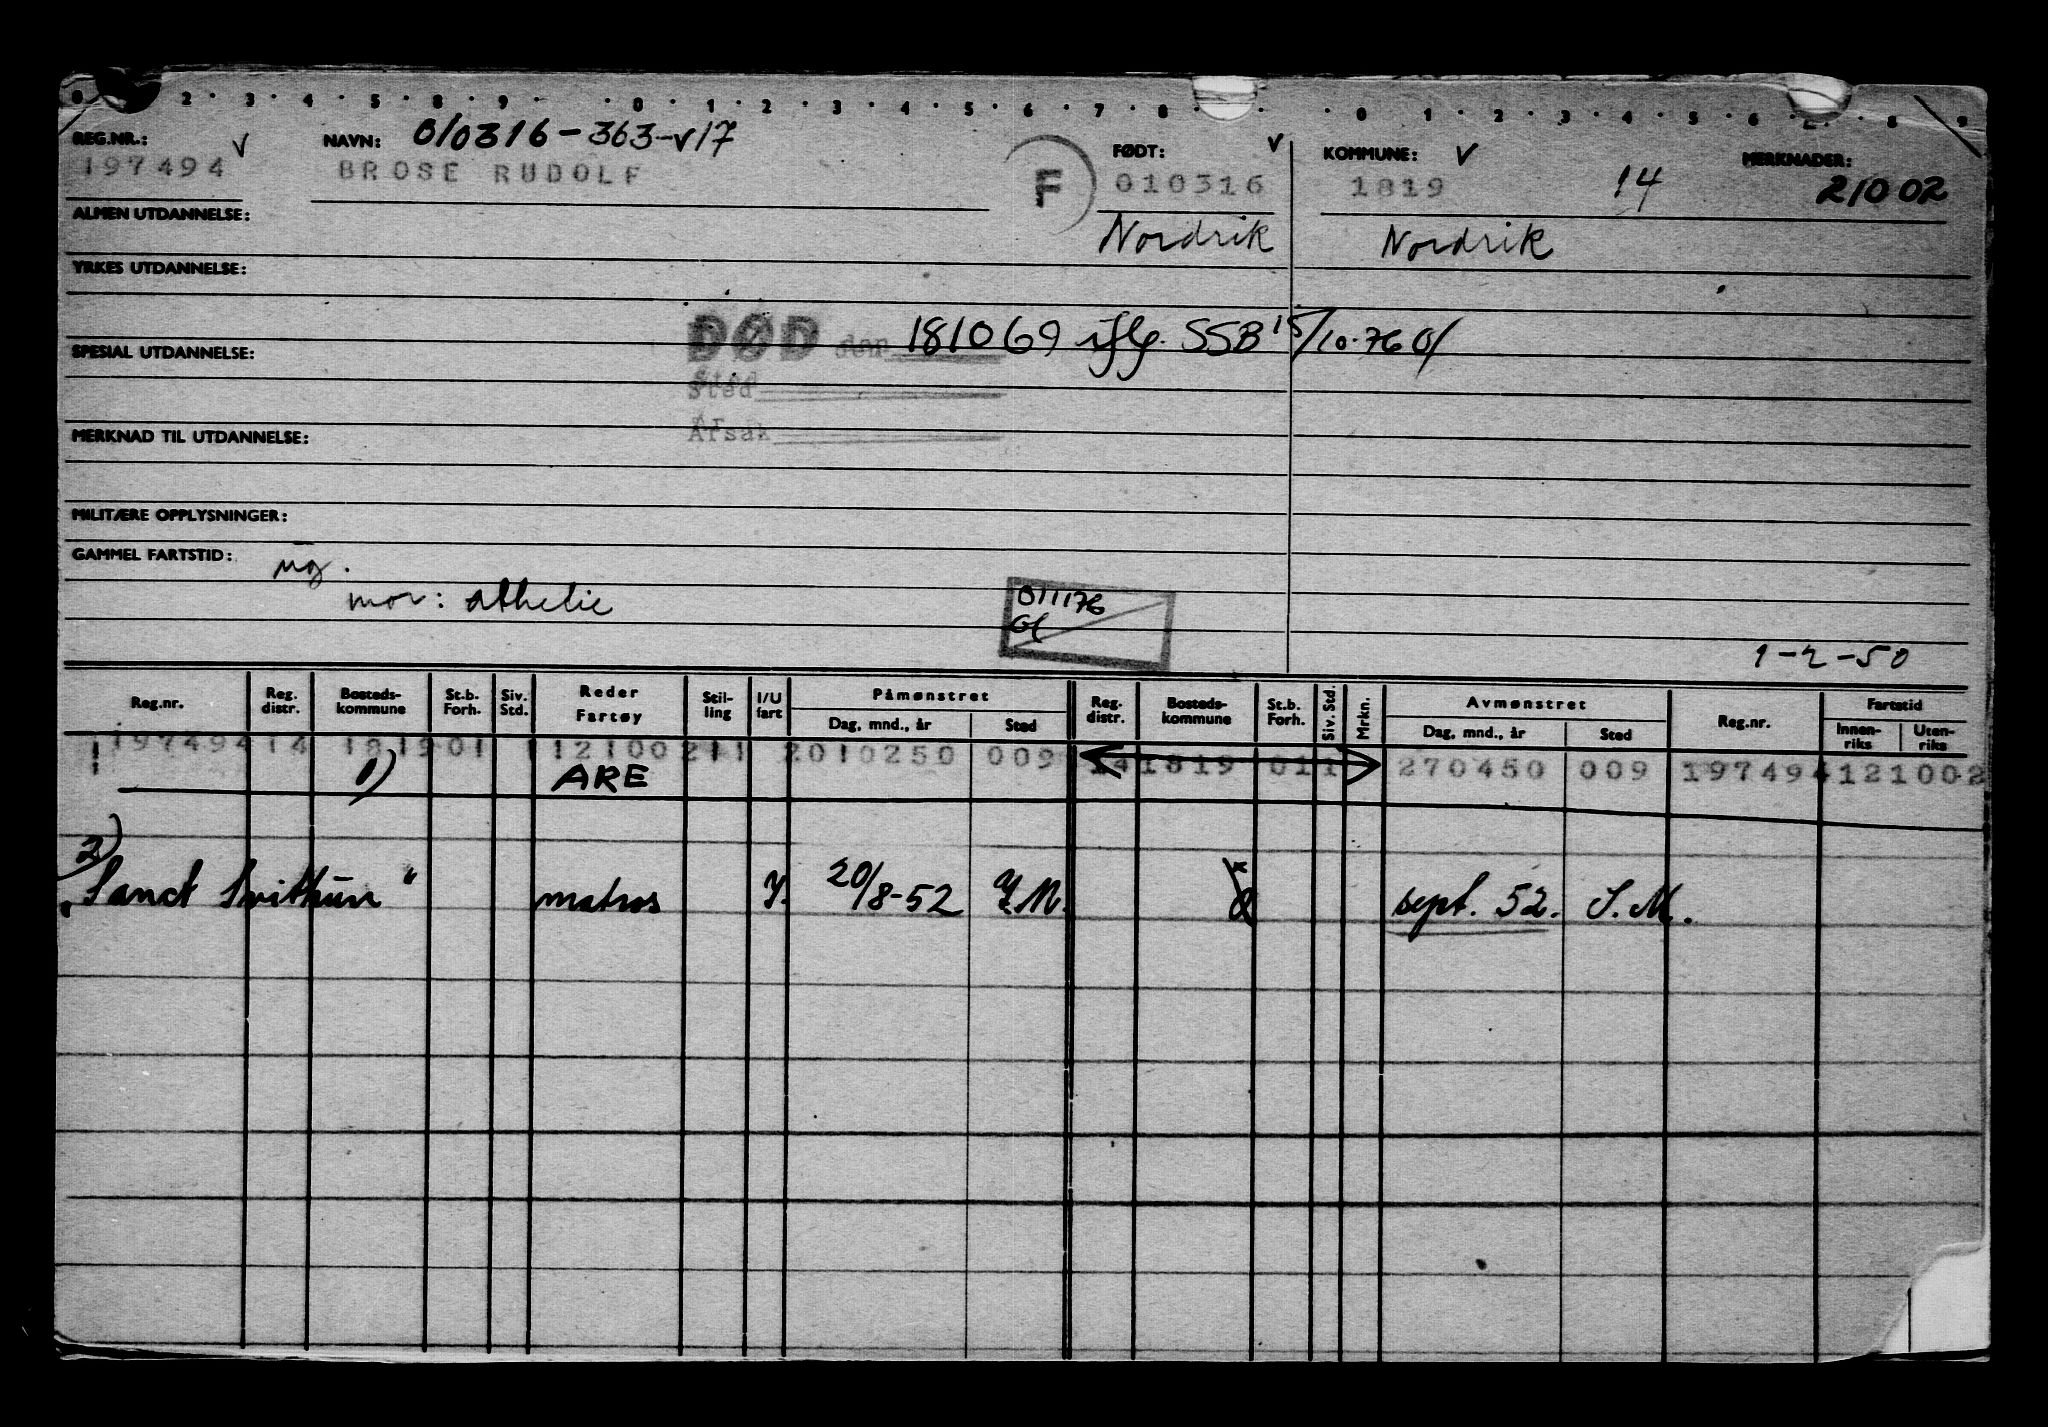 0 2 · 3 · 4 · 5 · 8 · 9 · · 0 · 1 · 2 · 3 · 4 · 5 · 6 · 7 · 8 · · 0 · 1 · 2 · 3 · 4 · 5 · 6 · 8 · 9
REG.NR.: v NAVN: 010316-363-v17 FØDT: v KOMMUNE: v MERKNADER:
197494 BROSE RUDOLF F 010316 1819 14 21002
ALMEN UTDANNELSE: Nordvik Nordvik
YRKES UTDANNELSE:
DØD den 181069 iflg. SSB 15/10.76 Gl
SPESIAL UTDANNELSE:
Sted
Årsak
MERKNAD TIL UTDANNELSE:
MILITÆRE OPPLYSNINGER:
GAMMEL FARTSTID: ug.
mor: Athelie 011176
Gl
1-2-50
Reg.nr. Reg. distr. Bosteds-kommune St.b. Forh. Siv. Std. Reder Fartøy Stil-ling I/U fart Påmønstret Dag, mnd., år Sted Reg. distr. Bosteds-kommune St.b. Forh. Siv. Std. Mrkn. Avmønstret Dag, mnd., år Sted Reg.nr. Fartstid Innen-riks Uten-riks
197494 14 1819 01 1 12100 211 2010250 009 14 1819 011 270450 009 197494 121002
1) ARE
2)
"Sanct Svithun" matros I. 20/8-52 sept. 52. S.M.